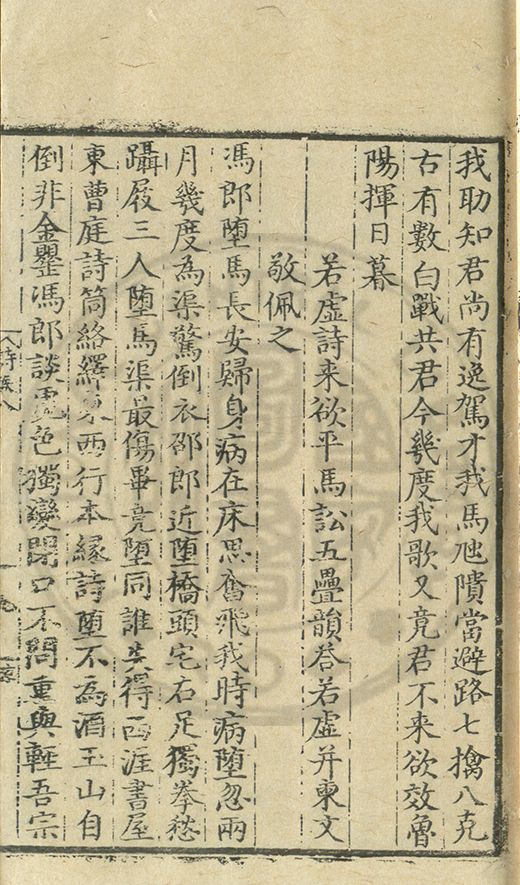 我助知君尚有逸駕才我馬虺隤當避路七擒八克
古有數白戰共君今幾度我歌又竟君不来欲效魯
陽揮日暮
若虛詩来欲平馬訟五疊韻荅若虛并柬文
敬佩之
馮郎堕馬長安歸身病在床思奮飛我時病堕忽兩
月幾度為渠驚倒衣邵郎近堕橋頭宅右足獨拳愁
躡屐三人堕馬渠最傷畢竟堕同誰失得西涯書屋
東曹庭詩筒絡繹東西行本縁詩堕不為酒玉山自
倒非金罍馮郎談虎色獨變閉口不問重與輕吾宗